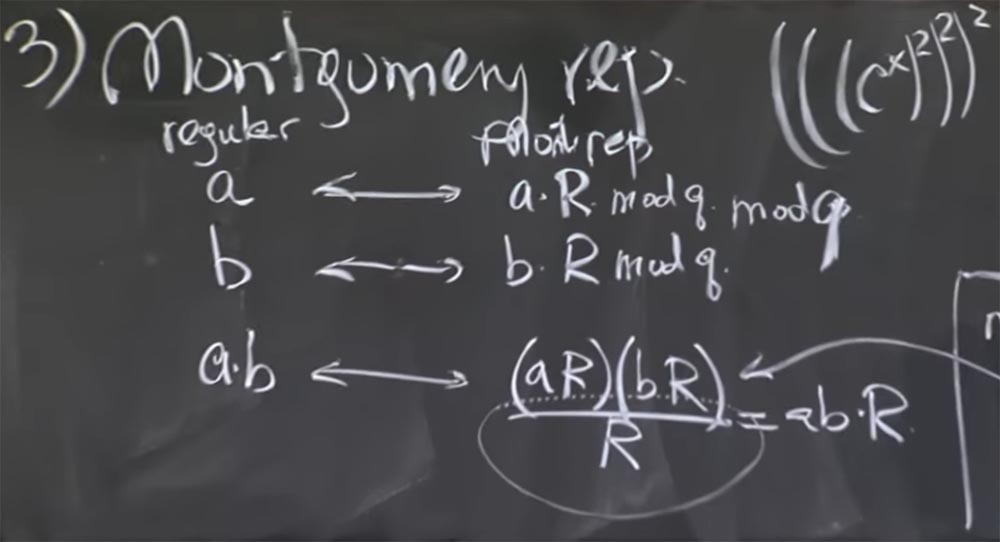 3) Montgomery rep.
(((c^x)^2)^2)^2
regular Mont rep
a ⟷ a·R mod q. mod q
b ⟷ b·R mod q.
a·b ⟷ (aR)(bR)/R = ab·R.